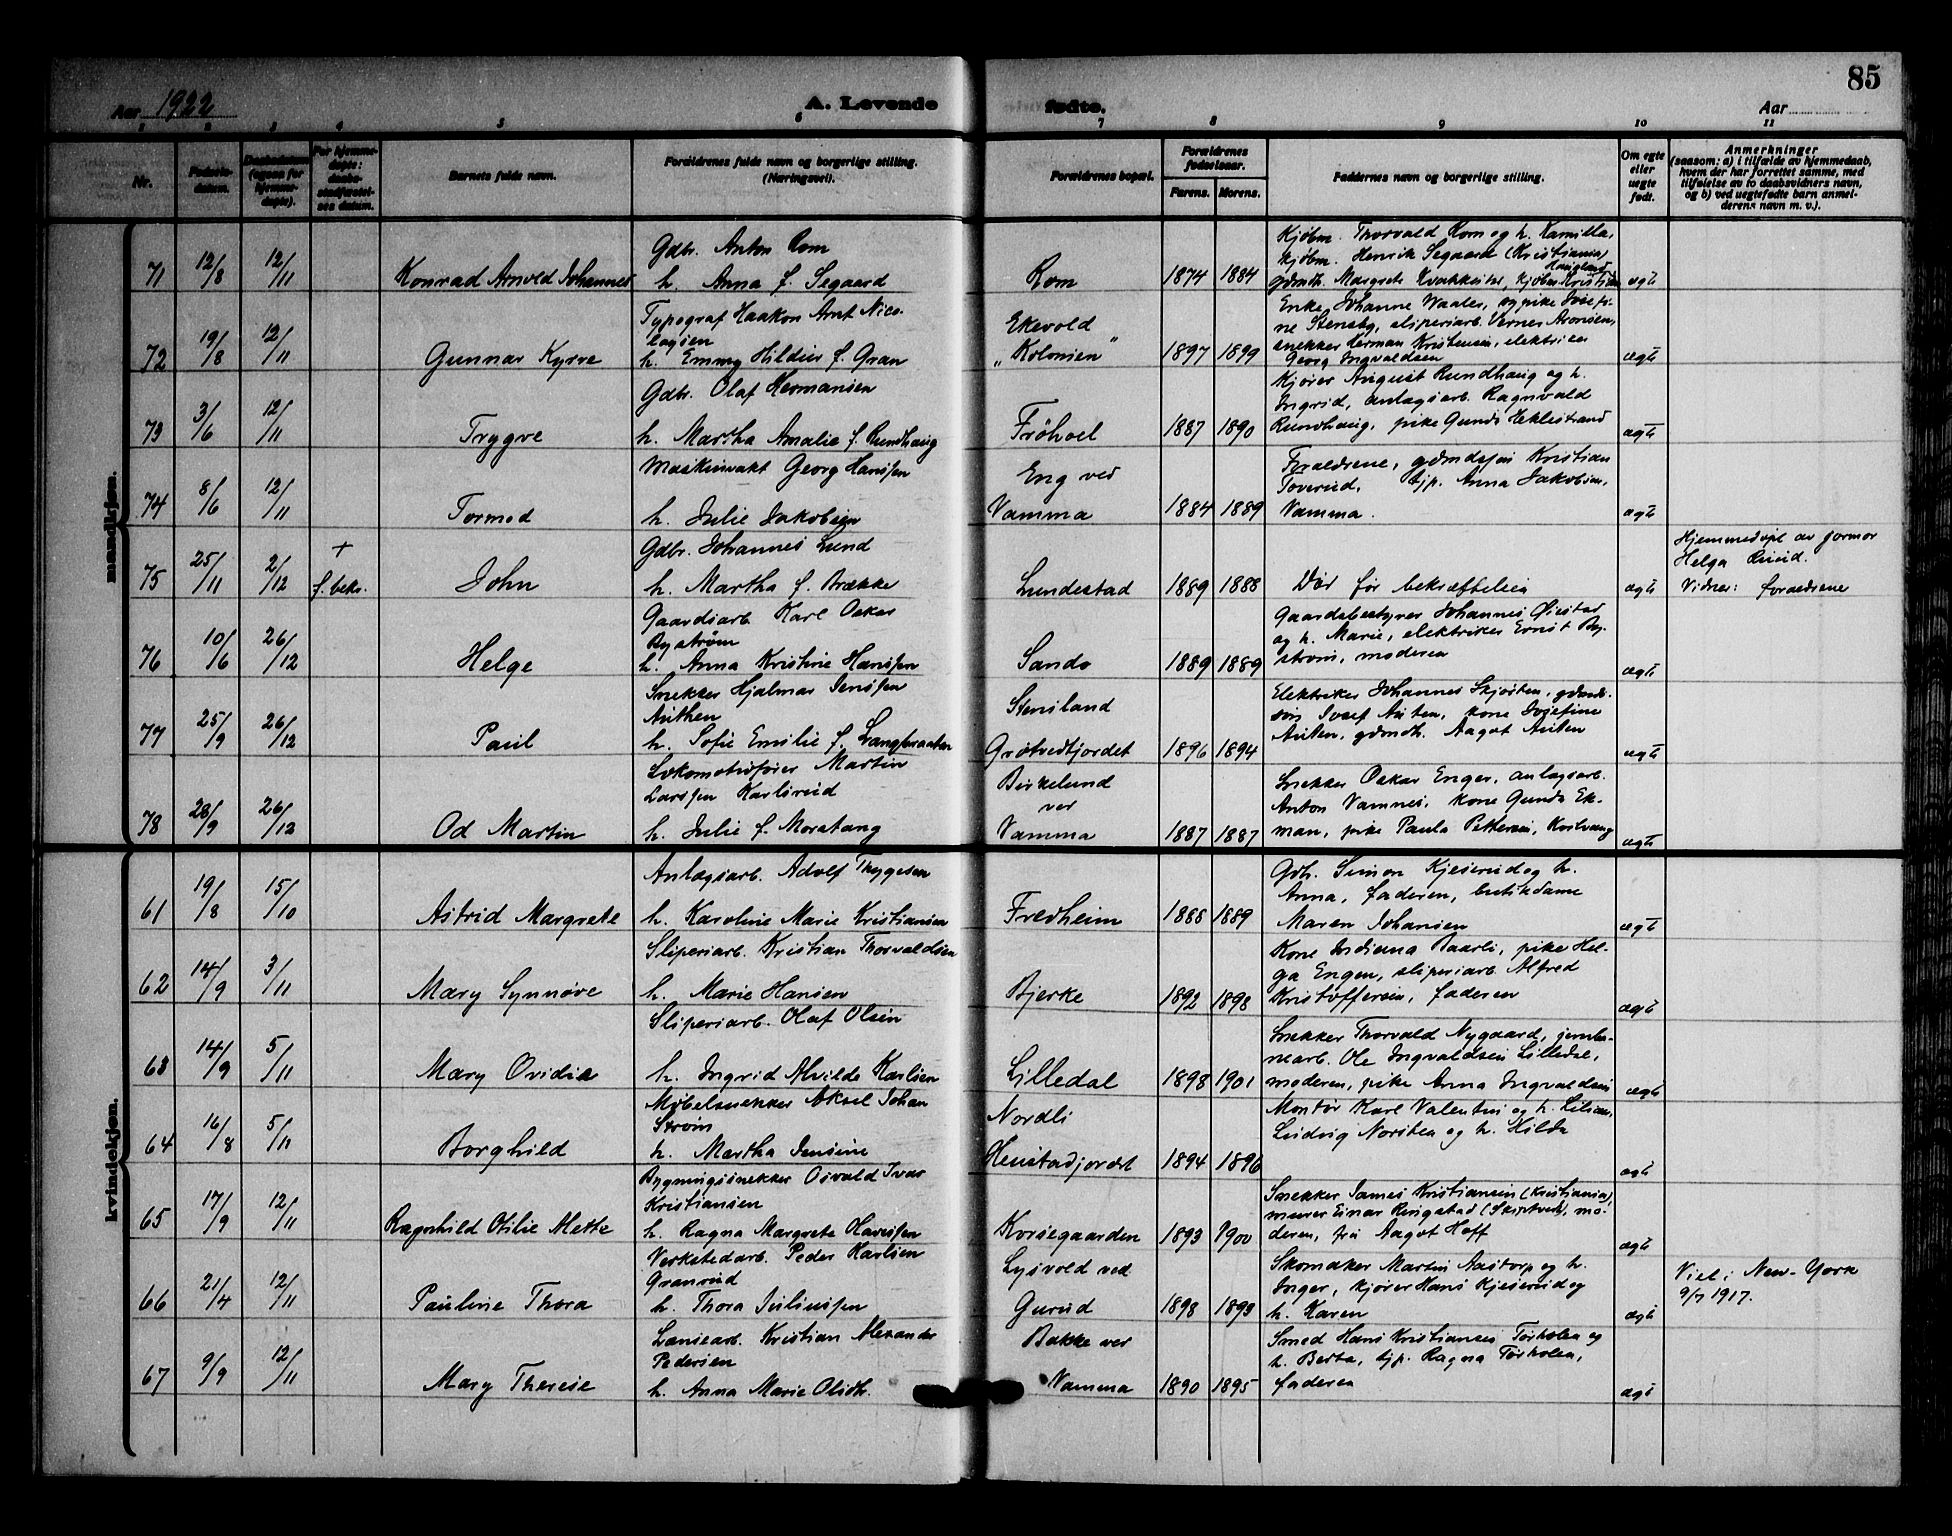 85
Aar 1922
A. Levende
fødte.
Aar
1 2 3 4 5 6 7 8 9 10 11
Nr.
Fødsels-
datum.
Daabsdatum
(ogsaa for
hjemme-
døpte).
For hjemme-
døpte:
daabs-
stadfæstel-
ses datum.
Barnets fulde navn.
Forældrenes fulde navn og borgerlige stilling.
(Næringsvei).
Forældrenes bopæl.
Forældrenes
fødselsaar.
Farens. Morens.
Faddernes navn og borgerlige stilling.
Om egte
eller
uegte
født.
Anmerkninger
(saasom: a) i tilfælde av hjemmedaab,
hvem der har forrettet samme, med
tilføielse av to daabsvidners navn,
og b) ved uegtefødte barn anmel-
derens navn m. v.).
mandkjøn.
71 12/8 12/11 Konrad Arnold Johannes
Gdbr. Anton Rom
h. Anna f. Segaard
Rom 1874 1884
Kjøbm. Thorvald Rom og h. Kamilla,
kjøbm. Henrik Segaard (Kristiania)
gdmdt. Margrete kjøbm. Kristian
Haugland
ægte
72 19/8 12/11 Gunnar Kyrre
Typograf Haakon Arnt Nico-
laysen
h. Emmy Hildur f. Gran
Ekevold
"Kolonien" 1897 1899
Enke Johanne Waaler, sypike Josefi-
ne Stensby, sliperiarb. Verner Aronsen,
snekker Herman Kristensen, elektriker
Georg Ingvaldsen
ægte
73 3/6 12/11 Trygve
Gdbr. Olaf Hermansen
h. Martha Amalie f. Rundhaug
Frøhoel 1887 1890
Kjører August Rundhaug og h.
Ingrid, anlægsarb. Ragnvald
Rundhaug, pike Gunda Heklestrand
ægte
74 8/6 12/11 Tormod
Maskinvakt Georg Hanssen
h. Julie Jakobsen
Eng ved
Vamma 1884 1889
Forældrene, gdmdssøn Kristian
Toverud, tjp. Anna Jakobsen,
Vamma.
ægte
75 25/11 2/12 + f. bekr. John
Gdbr. Johannes Lund
h. Martha f. Brække
Lundestad 1889 1888
Død før bekræftelsen
ægte
Hjemmedøpt av jormor
Helga Ruud.
Vidner: forældrene
76 10/6 26/12 Helge
Gaardsarb. Karl Oskar
Byström
h. Anna Kristine Hanssen
Sando 1889 1889
Gaardsbestyrer Johannes Øiestad
og h. Marie, elektriker Ernst By-
strøm, moderen
ægte
77 25/9 26/12 Paul
Snekker Hjalmar Jenssen
Authen
h. Sofie Emilie f. Langbraaten
Stensland
Grøtvedtjordet 1896 1894
Elektriker Johannes Skjørten, gdmds-
søn Josef Auten, kone Josefine
Auten, gdmdt. Aagot Auten
ægte
78 28/9 26/12 Od Martin
Lokomotivfører Martin
Larssen Karlsrud
h. Julie f. Morstang
Birkelund
ved
Vamma 1887 1887
Snekker Oskar Enger, anlægsarb.
Anton Vamnes, kone Gunda Ek-
man, pike Paula Pettersen,
ægte
kvindekjøn.
61 19/8 15/10 Astrid Margrete
Anlægsarb. Adolf Thygesen
h. Karoline Marie Kristiansen
Fredheim 1888 1889
Gdb. Simon Kjeserud og h.
Anna, faderen, butikdame
Maren Johansen
ægte
62 14/9 3/11 Mary Synnøve
Sliperiarb. Kristian Thorvaldsen
h. Marie Hansen
Bjerke 1892 1898
Kone Indiana Paarli, pike Hel-
ga Engen, sliperiarb. Alfred
Kristoffersen, faderen
ægte
63 14/9 5/11 Mary Ovidia
Sliperiarb. Olaf Olsen
h. Ingrid Alvilde Karlsen
Lilledal 1898 1901
Snekker Thorvald Nygaard, jernba-
nearb. Ole Ingvaldsen Lilledal,
moderen, pike Anna Ingvaldsen
ægte
64 16/8 5/11 Borghild
Møbelsnekker Aksel Johan
Strøm
h. Martha Jensine
Nordli
Henstadjordet 1894 1896
Montør Karl Valentin og h. Lilian,
Ludvig Norsten og h. Hilda
ægte
65 17/9 12/11 Ragnhild Otilie Mette
Bygningssnekker Osvald Ivar
Kristiansen
h. Ragna Margrete Hanssen
Korsegaarden 1893 1900
Snekker James Kristiansen (Kristiania)
murer Einar Ringstad (Skiptvedt), mo-
deren, frø Aagot Hoff
ægte
66 21/4 12/11 Pauline Thora
Verkstedarb. Peder Karlsen
Granrud
h. Thora Juliussen
Lysvold ved
Gurud 1898 1899
Skomaker Martin Aastorp og h.
Inger, kjører Hans Kjeserud og
h. Karen
ægte
Viet i New-York
9/7 1917.
67 9/9 12/11 Mary Therese
Lænsearb. Kristian Alexander
Pedersen
h. Anna Marie Olsdt.
Bakke ved
Vamma 1890 1895
Smed Hans Kristiansen Torholen og
h. Berta, tjp. Ragna Torholen,
faderen
ægte